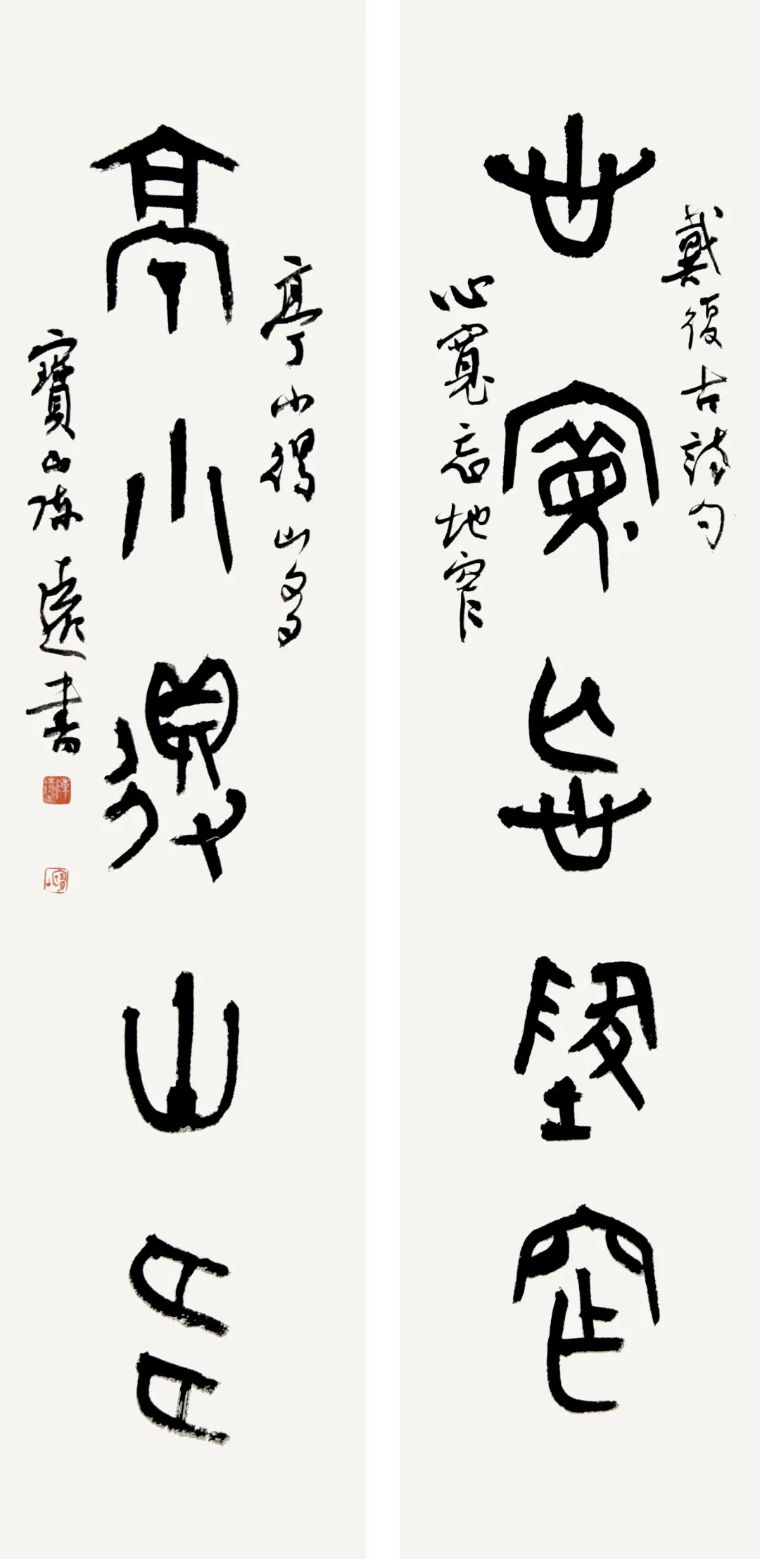 戴復古詩句
心寬忘地窄
心寬忘地窄
亭小得山多
亭小得山多
寶山陳遠書